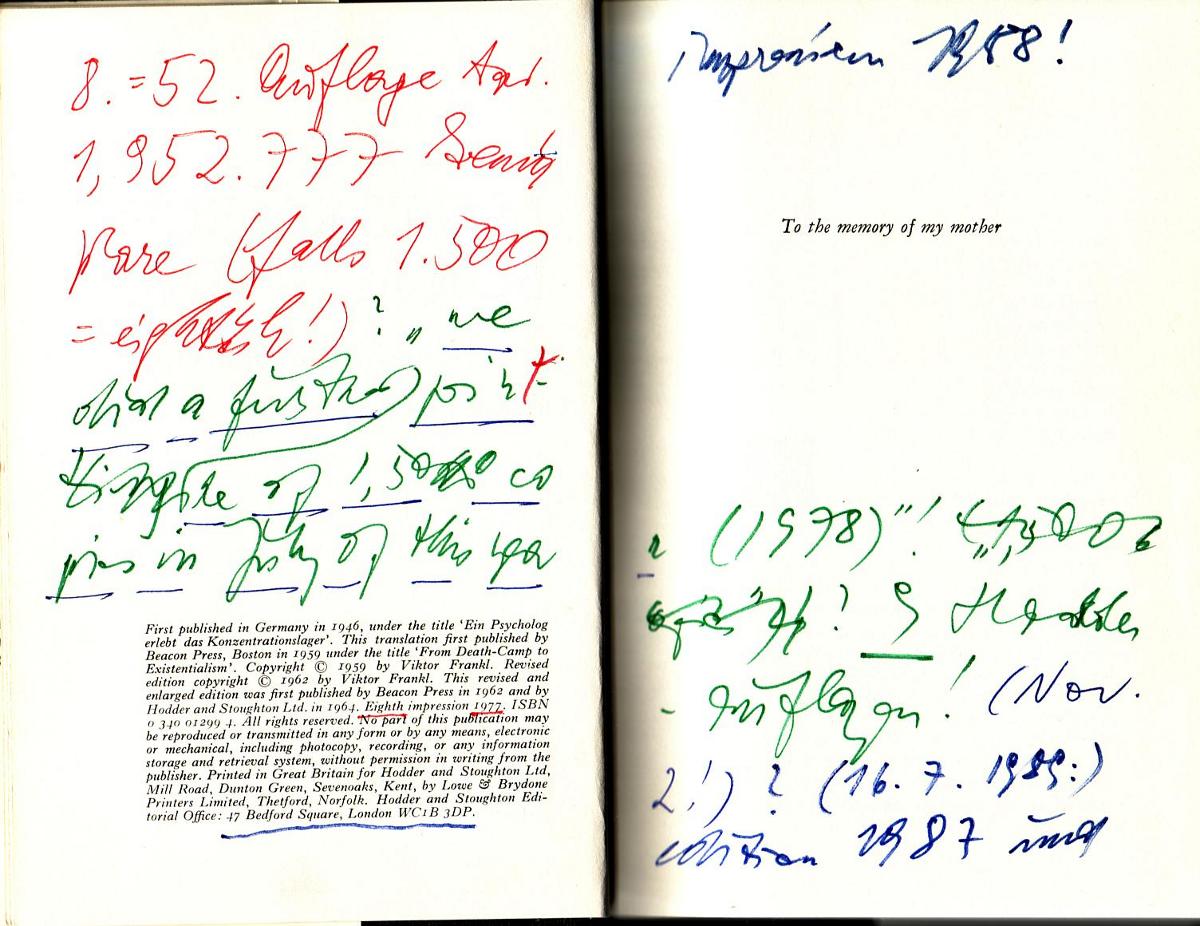 8. = 52. Auflage
1,952.777
(falls 1.500
= !) ? „ we
did a further) point
of 1,5 co
pies in July of this year
First published in Germany in 1946, under the title 'Ein Psycholog
erlebt das Konzentrationslager'. This translation first published by
Beacon Press, Boston in 1959 under the title 'From Death-Camp to
Existentialism'. Copyright © 1959 by Viktor Frankl. Revised
edition copyright © 1962 by Viktor Frankl. This revised and
enlarged edition was first published by Beacon Press in 1962 and by
Hodder and Stoughton Ltd. in 1964. Eighth impression 1977. ISBN
0 340 01299 4. All rights reserved. No part of this publication may
be reproduced or transmitted in any form or by any means, electronic
or mechanical, including photocopy, recording, or any information
storage and retrieval system, without permission in writing from the
publisher. Printed in Great Britain for Hodder and Stoughton Ltd,
Mill Road, Dunton Green, Sevenoaks, Kent, by Lowe & Brydone
Printers Limited, Thetford, Norfolk. Hodder and Stoughton Edi-
torial Office: 47 Bedford Square, London WC1B 3DP.
Impression 1988!
To the memory of my mother
(1978)"!
? 9 Hodder
- Auflagen! (Nov.
2!) ? (16. 7. 1989:)
edition 1987 und